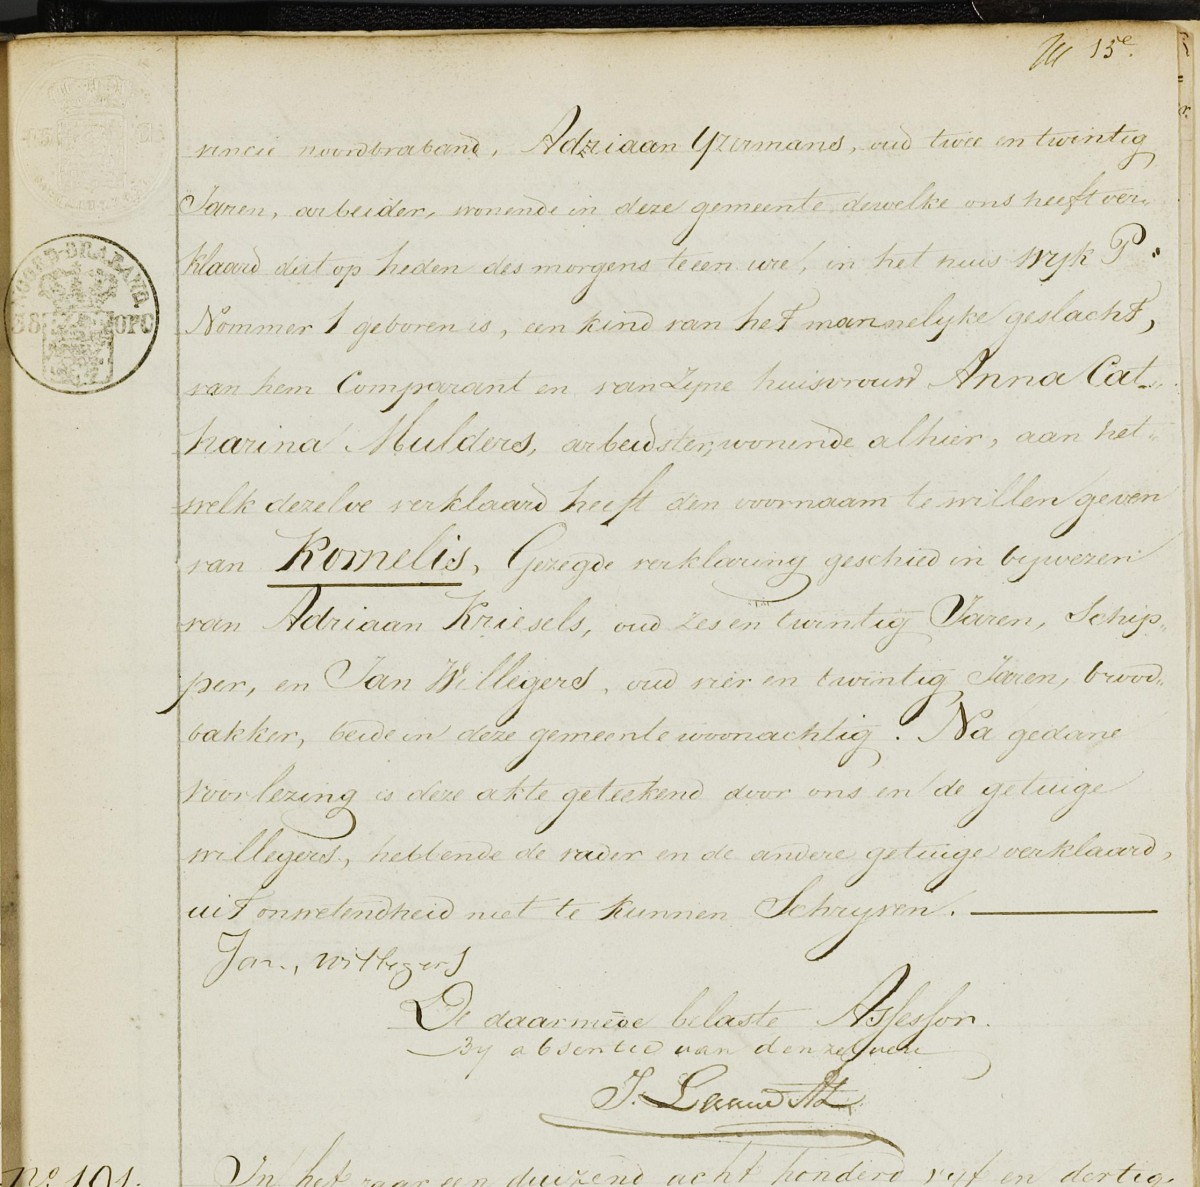 15e.
vincie noordbraband, Adriaan Yzermans, oud twee en twintig
Jaren, arbeider, wonende in deze gemeente, dewelke ons heeft ver-
klaard dat op heden des morgens te een ure, in het huis wyk P:
Nommer 1 geboren is, een kind van het mannelyke geslacht,
van hem Comparant en van zyne huisvrouw Anna Cat-
harina Mulders, arbeidster, wonende alhier, aan het-
welk dezelve verklaard heeft den voornaam te willen geven
van Kornelis, Gezegde verklaring geschied in bywezen
van Adriaan Kriesels, oud zes en twintig Jaren, Schip-
per, en Jan Willegers, oud vier en twintig Jaren, brood-
bakker, beide in deze gemeente woonachtig. Na gedane
voorlezing is deze akte geteekend door ons en de getuige
willegers, hebbende de vader en de andere getuige verklaard,
uit onwetendheid niet te kunnen Schryven.
NOORD-BRABAND.
38 OPC
Jan, willegers
De daarmede belaste Assessor.
By absentie van denzelven
J.
No. 101.
In het jaar een duizend acht honderd vyf en dertig